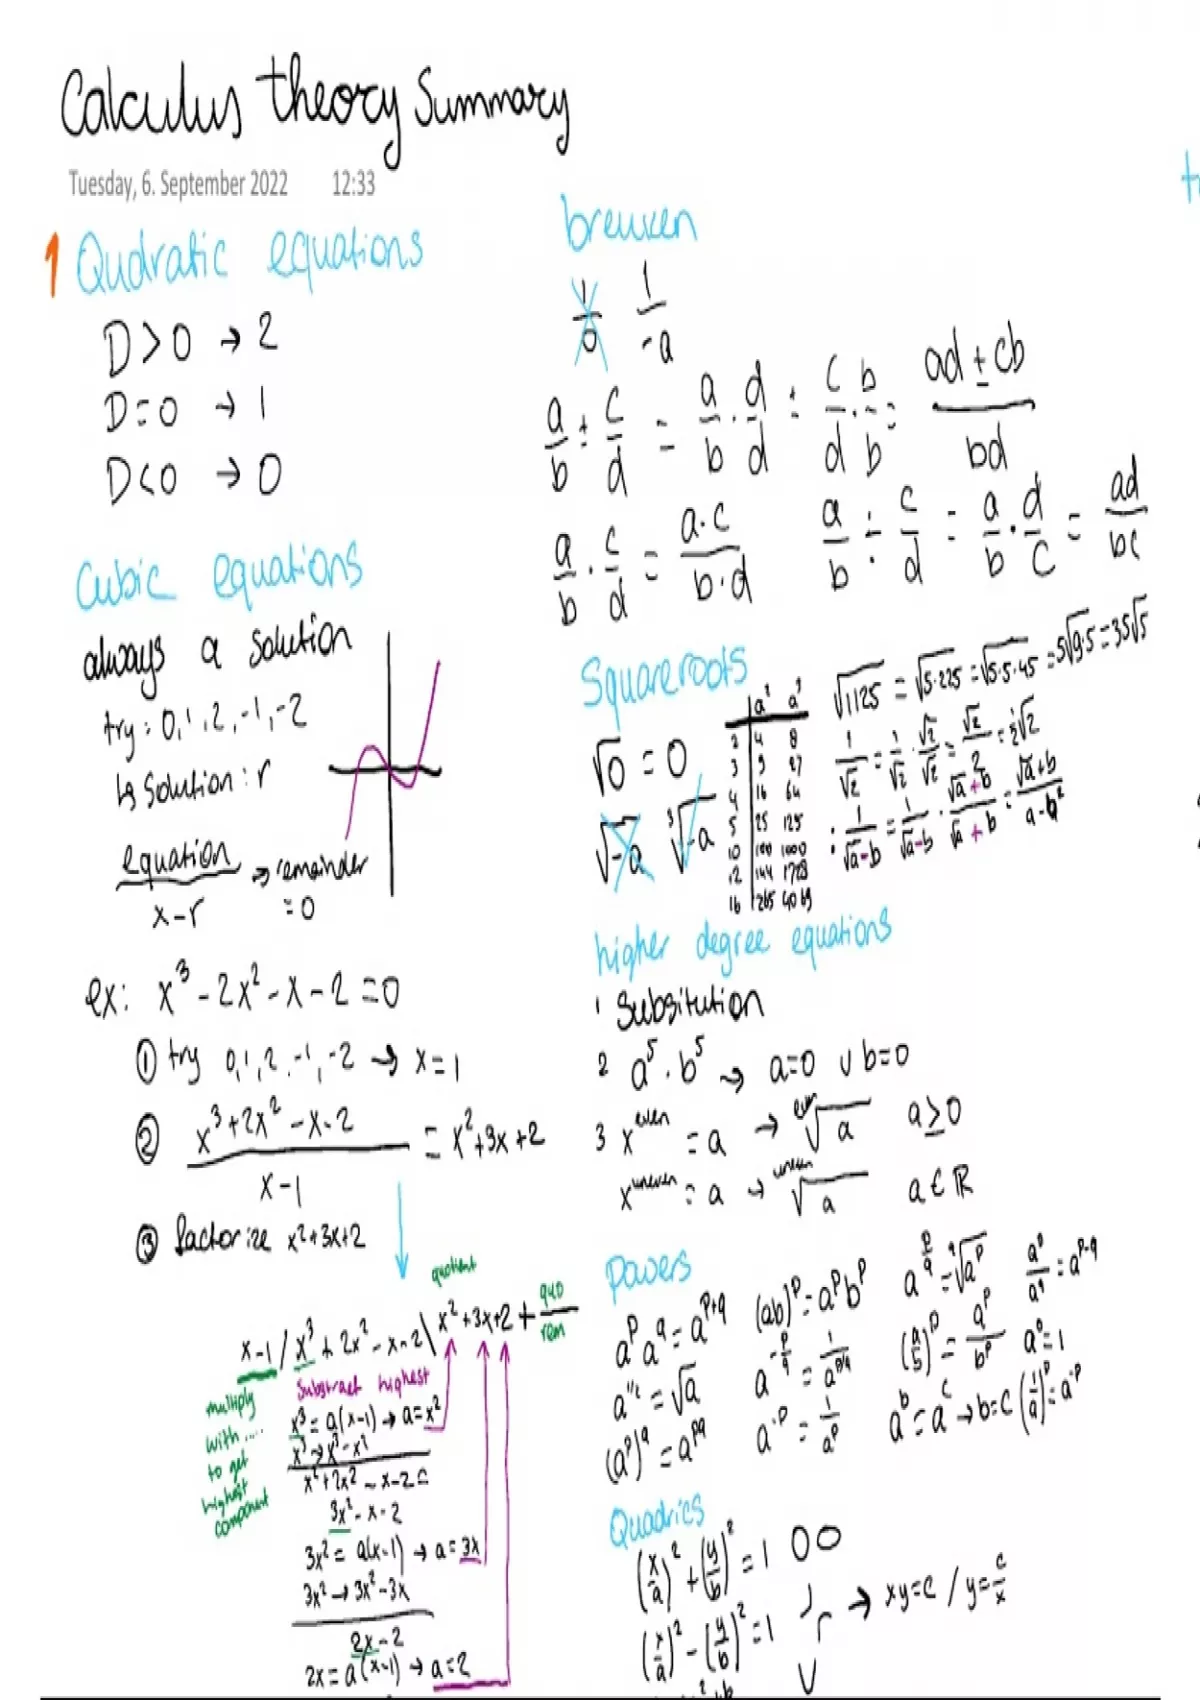 Calculus theory Summary
Tuesday, 6. September 2022 12:33
1 Qudratic equations
D>0 → 2
D=0 → 1
D<0 → 0
Cubic equations
always a solution
try: 0,1,2,-1,-2
↳ Solution: r
equation/(x-r) → remainder = 0
ex: x³ - 2x² - x - 2 = 0
① try 0,1,2,-1,-2 → x=1
② (x³+2x²-x-2)/(x-1) = x²+3x+2
③ factorize x²+3x+2
quotient
x-1 / x³ + 2x² - x - 2 \ x²+3x+2 + quo/rem
Substract highest
multiply
with ....
to get
highest
component
x³ = a(x-1) → a = x²
x³ → x³-x²
x³+2x² - x - 2 =
3x² - x - 2
3x² = a(x-1) → a = 3x
3x² → 3x²-3x
2x - 2
2x = a(x-1) → a = 2
breuken
1/0 1/-a
a/b ± c/d = a/b · d/d ± c/d · b/b = (ad ± cb)/bd
a/b · c/d = a·c/b·d a/b ÷ c/d = a/b · d/c = ad/bc
Squareroots
√0 = 0
√-a ³√-a
a² a³
2 4 8
3 9 27
4 16 64
5 25 125
10 100 1000
12 144 1728
16 265 4069
√1125 = √5·225 = √5·5·45 = 5√9·5 = 35√5
1/√2 = 1/√2 · √2/√2 = √2/2 = ½√2
: 1/(√a-b) = 1/(√a-b) · (√a+b)/(√a+b) = (√a+b)/(a-b²)
higher degree equations
1 Subsitution
2 a⁵ · b⁵ → a=0 ∨ b=0
3 x^even = a → even√a a ≥ 0
x^uneven = a → uneven√a a ∈ ℝ
Powers
a^p a^q = a^(p+q) (ab)^p = a^p b^p a^(p/q) = q√a^p a^p/a^q = a^(p-q)
a^(1/2) = √a a^(-p/q) = 1/a^(p/q) (a/b)^p = a^p/b^p a⁰=1
(a^p)^q = a^(pq) a^(-p) = 1/a^p a^b = a^c → b=c (1/a)^p = a^(-p)
Quadrics
(x/a)² + (y/b)² = 1
(x/a)² - (y/b)² = 1 → xy=c / y=c/x